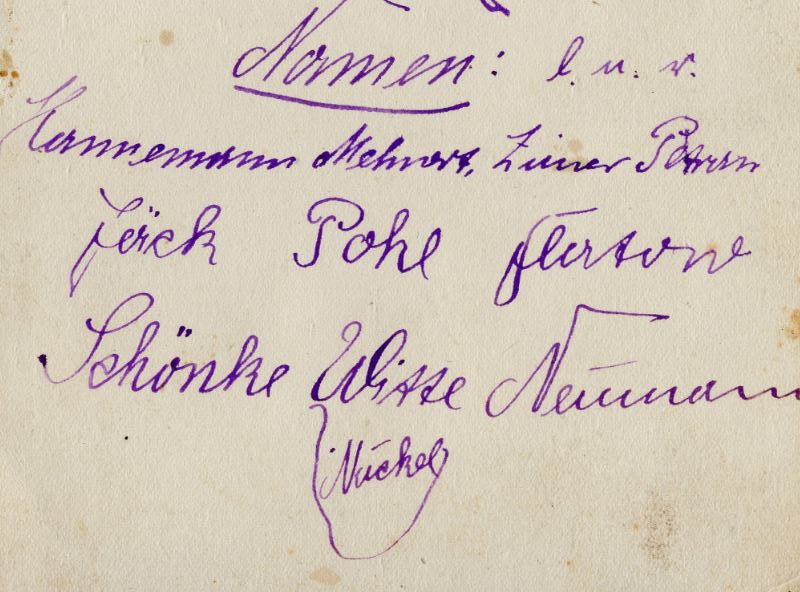 Namen: l. u. r.
Hannemann Mehnert, Zimer Petran
Jäck Pohl Flatow
Schönke Witte Neumann
Nuckel